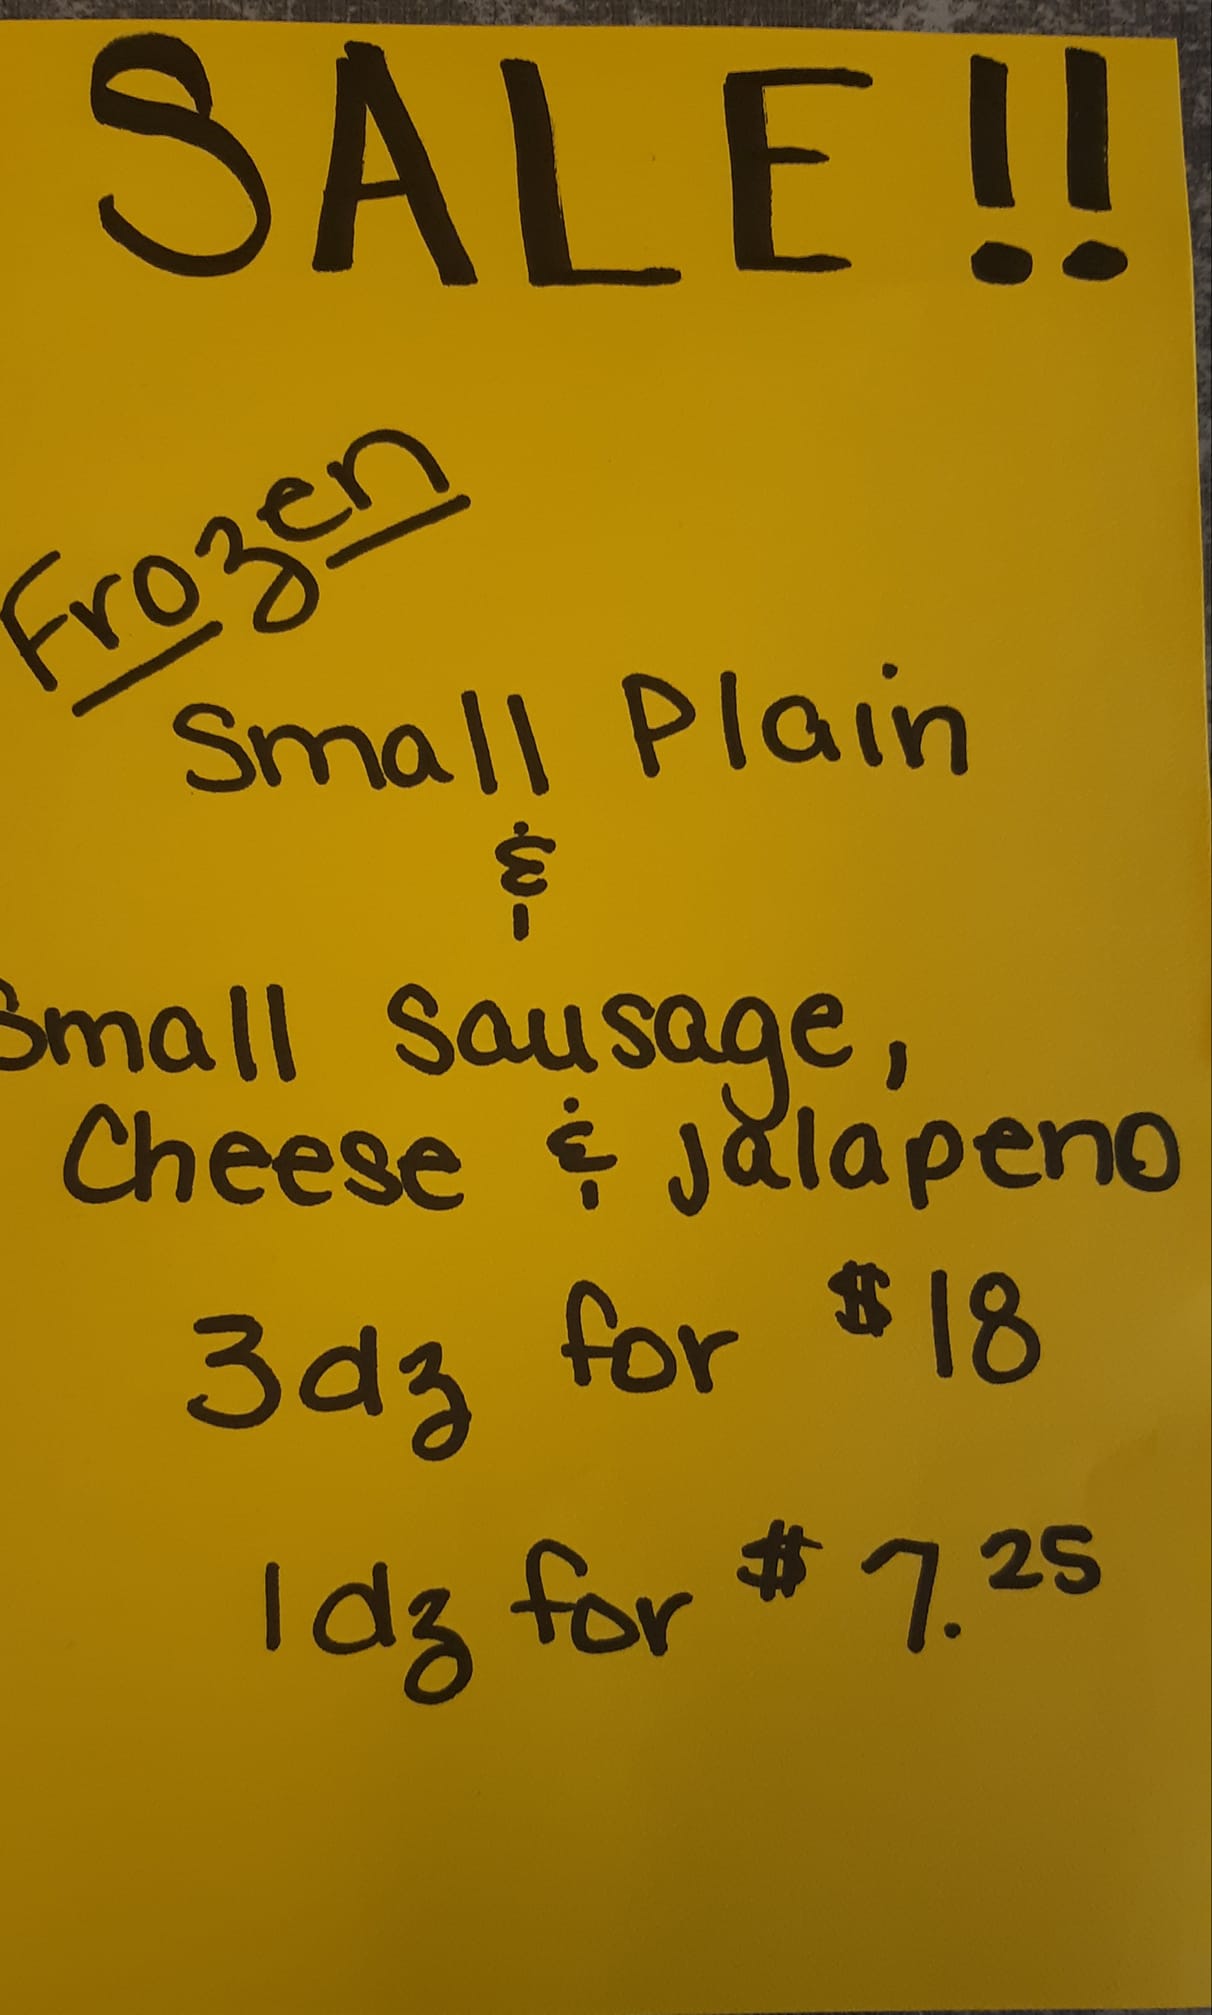 SALE!!
Frozen
Small Plain
&
Small Sausage,
Cheese & Jalapeno
3dz for $18
1dz for $7.25